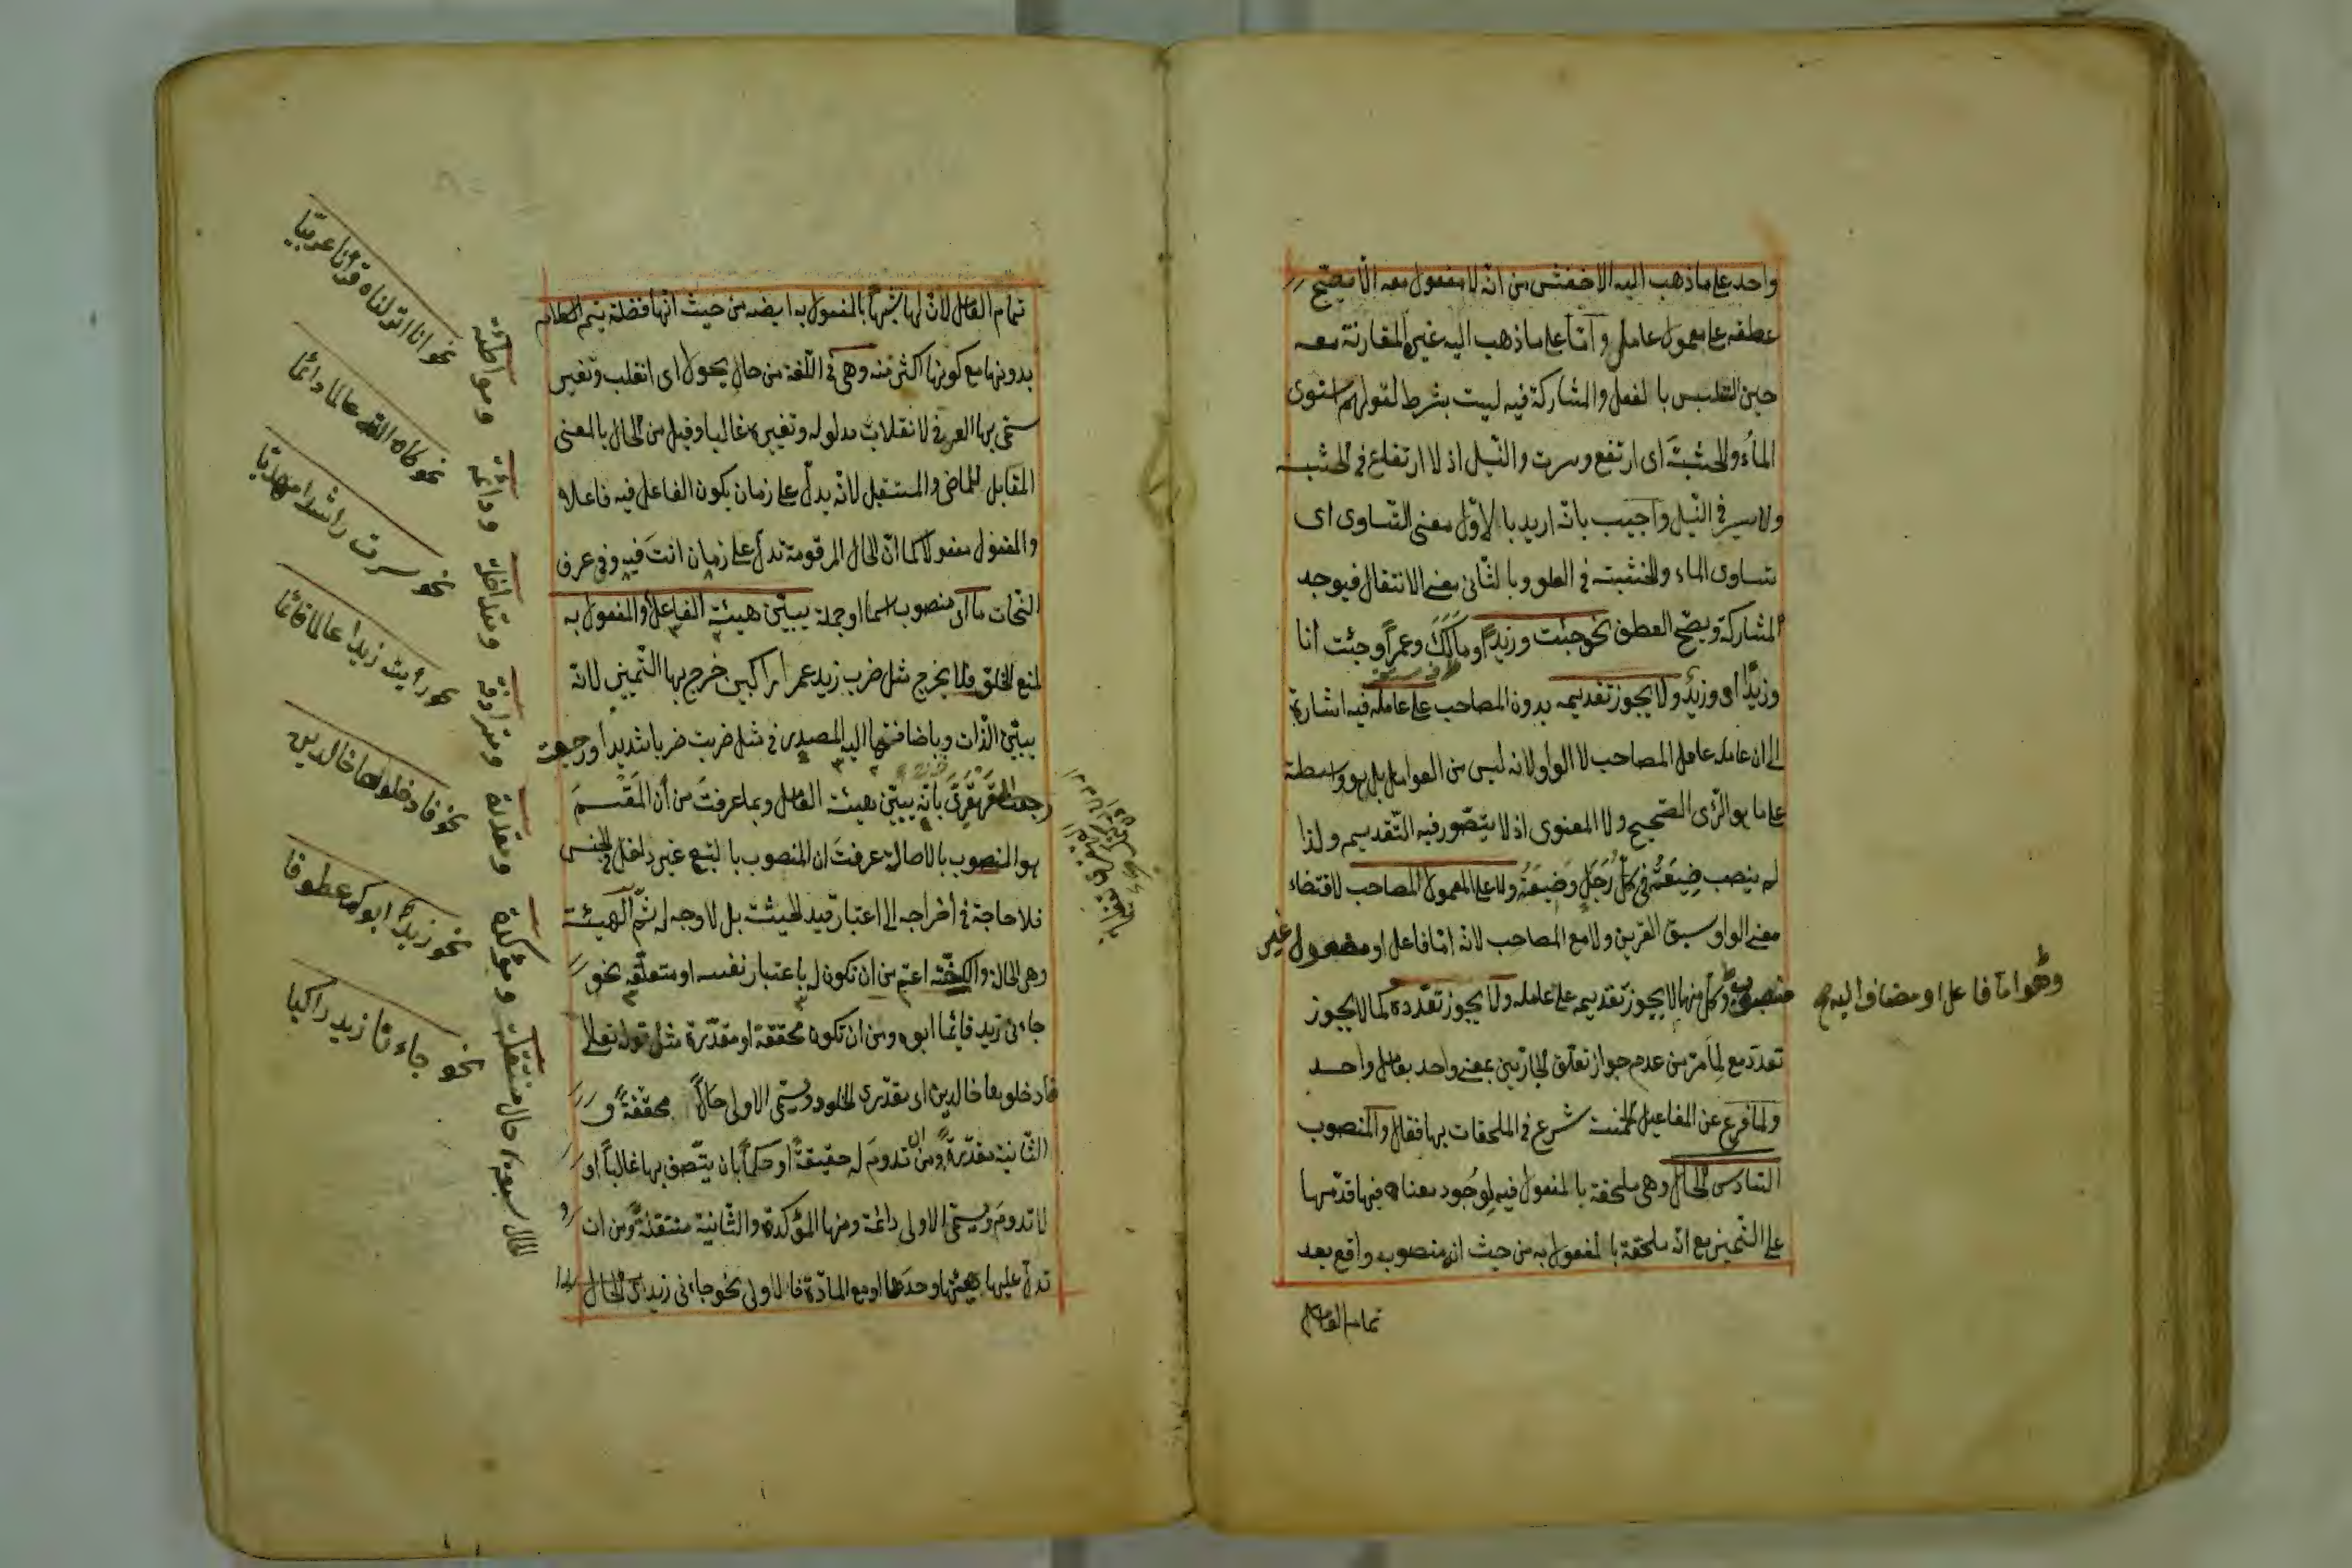 واحد على ما ذهب اليه الاخفش من انّه لا مفعول معه الّا يصحّ
عطفه على معمول عامله وامّا على ما ذهب اليه غيره المقارنة معه
حين التلبس بالفعل والمشاركة فيه ليست بشرط لقولهم استوى
الماءُ والخشبةَ اى ارتفع وسرت والنّيل اذ لا ارتفاع فى الخشبة
ولا سير فى النّيل واجيب بانّه اريد بالاوّل معنى التّساوى اى
تساوى الماء والخشبة فى العلو وبالثّانى معنى الانتقال فيوجد
المشاركة ويصحّ العطف نحو جئت وزيدًا ومالكَ وعمرًا وجئت انا
وزيدًا او وزيدٌ ولا يجوز تقديمه بدون المصاحب على عامله فيه اشارة
الى ان عامله عامل المصاحب لا الواو لانه ليس من العوامل بل هو واسطة
على ما هو الرّأى الصّحيح ولا المعنوى اذ لا يتصوّر فيه التّقديم ولذا
لم ينصب ضيعته فى كلّ رجل وضيعته ولا على المعمول المصاحب لاقتضاء
معنى الواو سبق القرين ولا مع المصاحب لانّه امّا فاعل او مفعول غير
منصوب وكلّ منهما لا يجوز تقديمه على عامله ولا يجوز تعدّده كما لا يجوز
تعدّد مع لما مرّ من عدم جواز تعلّق الجارّين بمعنى واحد بعامل واحد
ولما فرغ عن المفاعيل الخمسة شرع فى الملحقات بها فقال والمنصوب
السّادس الحال وهى ملحقة بالمفعول فيه لوجود معناه فيها قدّمها
على التّمييز مع انّه ملحقة بالمفعول به من حيث انه منصوب واقع بعد
تمام الفاعل
وهو امّا فاعل او مضاف اليه
تمام الفاعل لانّ لها شبهًا بالمفعول به ايضه من حيث انّها فضلة يتم الكلام
بدونها مع كونها اكثر منه وهى فى اللّغة من حال يحول اى انقلب وتغيّر
سمّى بها العرف لانقلاب مدلوله وتغيره غالبا وقيل من الحال بالمعنى
المقابل للماضى والمستقبل لانّه يدلّ على زمان يكون الفاعل فيه فاعلا
والمفعول مفعولا كما انّ الحال المرقومة تدلّ على زمان انتَ فيه وفى عرف
النّحات ما اى منصوب اسما او جملة يبيّن هيئة الفاعل او المفعول به
لمنع الخلو فلا يخرج مثل ضرب زيد عمرا راكبين خرج بها التّمييز لانّه
يبيّن الذّات وباضافتها اليه المصدر فى مثل ضربت ضربا شديدا ورجعت
رجعت القهقرى بانّه يبيّن هيئة الفاعل وبما عرفتَ من أن المَقْسمَ
هو المنصوب بالاصالة عرفتَ ان المنصوب بالتبع غير داخل فى الجنس
فلا حاجة فى اخراجه الى اعتبار قيد الحيثية بل لا وجه له ثمّ الهيئة
وهى الحالة والكيفيّة اعمّ من ان تكون له باعتبار نفسه او متعلّقه نحو
جاءنى زيد قائما ابوه ومن ان تكون محققة او مقدّرة مثل قوله تعالى
فادخلوها خالدين اى مقدّرى الخلود ويسمّى الاولى حالًا محقّقةً و
الثّانية مقدّرةً ومن ان تدومَ له حقيقةً او حكمًا بان يتّصف بها غالبًا او
لا تدومَ ويسمّى الاولى دائمة ومنها المؤكدة والثّانية منتقلةً ومن ان
تدلّ عليها هيئتها وحدها او مع المادّة فالاولى نحو جاءنى زيد
الحال سبعة حال منتقلة ومؤكدة ومقدرة ومترادفة ومتداخلة ودائمة ومواطئة
نحو انا انزلناه قرآنا عربيّا
نحو كان الله عالما دائما
نحو سرت راشدا مهديّا
نحو رأيت زيدا عالما قائما
نحو فادخلوها خالدين
نحو زيدٌ ابوك عطوفا
نحو جاءنا زيد راكبا